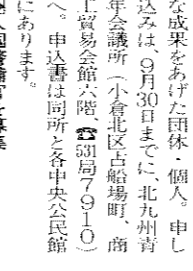 な成果をあげた団体・個人。申し
込みは、9月30日までに、北九州青
年会議所（小倉北区古船場町、商
工貿易会館六階、☎531局7910）
へ。申込書は同所と各中央公民館
にあります。